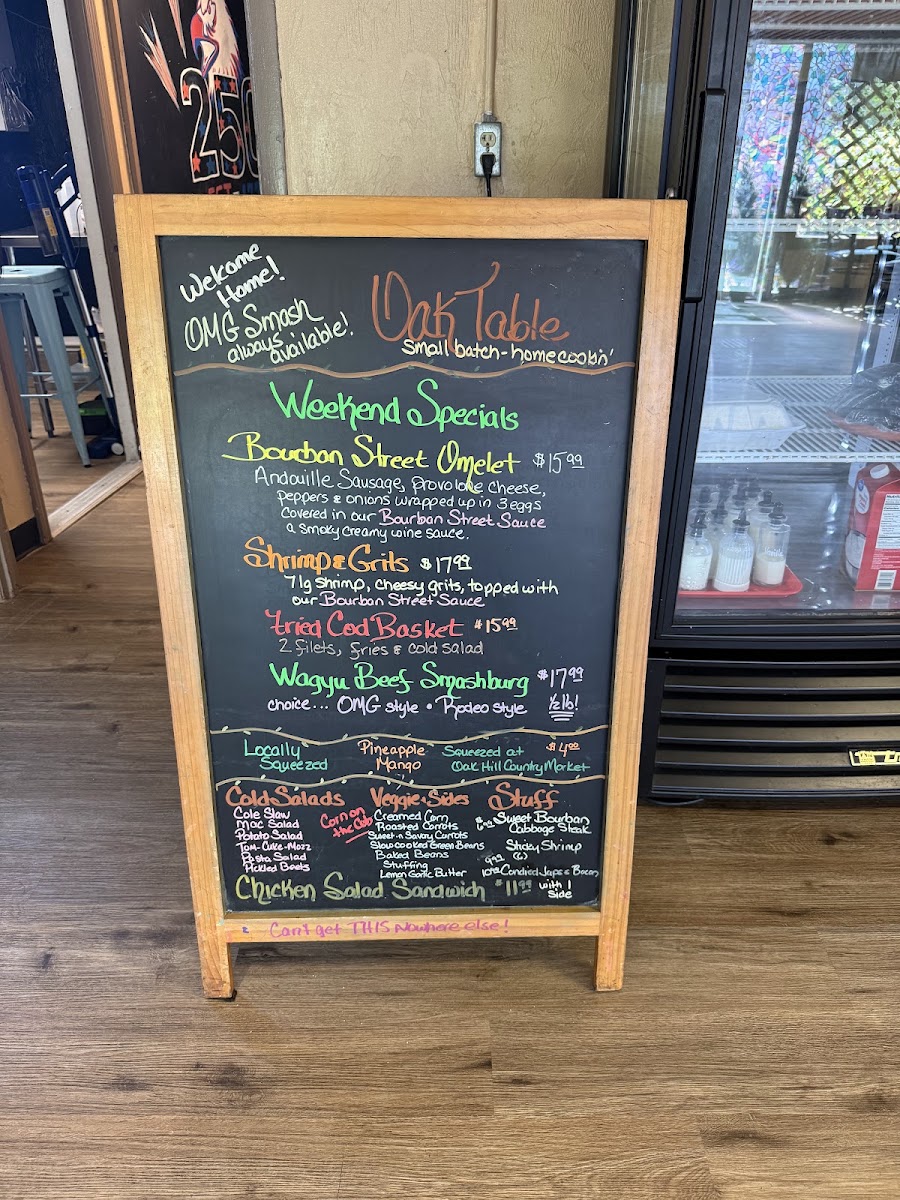 250
Welcome
Home!
OMG Smash
always
available!
Oak Table
small batch - home cookin'
Weekend Specials
Bourbon Street Omelet $15.99
Andouille Sausage, provolone cheese,
peppers & onions wrapped up in 3 eggs
covered in our Bourbon Street Sauce
a smoky creamy wine sauce.
Shrimp & Grits $17.99
7 lg shrimp, cheesy grits, topped with
our Bourbon Street Sauce
Fried Cod Basket $15.99
2 filets, fries & cold salad
Wagyu Beef Smashburg $17.99
choice... OMG style • Rodeo style ½ lb!
Locally
Squeezed
Pineapple
Mango
Squeezed at $4.00
Oak Hill Country Market
Cold Salads
Cole Slaw
Mac Salad
Potato Salad
Tom-Cuke-Mozz
Pasta Salad
Pickled Beets
Corn on
the Cob
Veggie & Sides
Creamed Corn
Roasted Carrots
Sweet n Savory Carrots
Slow cooked Green Beans
Baked Beans
Stuffing
Lemon Garlic Butter
Stuff
Sweet Bourbon
Cabbage Steak
Sticky Shrimp
Candied Japs & Bacon
Chicken Salad Sandwich $11.99 with 1
side
Can't get THIS Nowhere else!